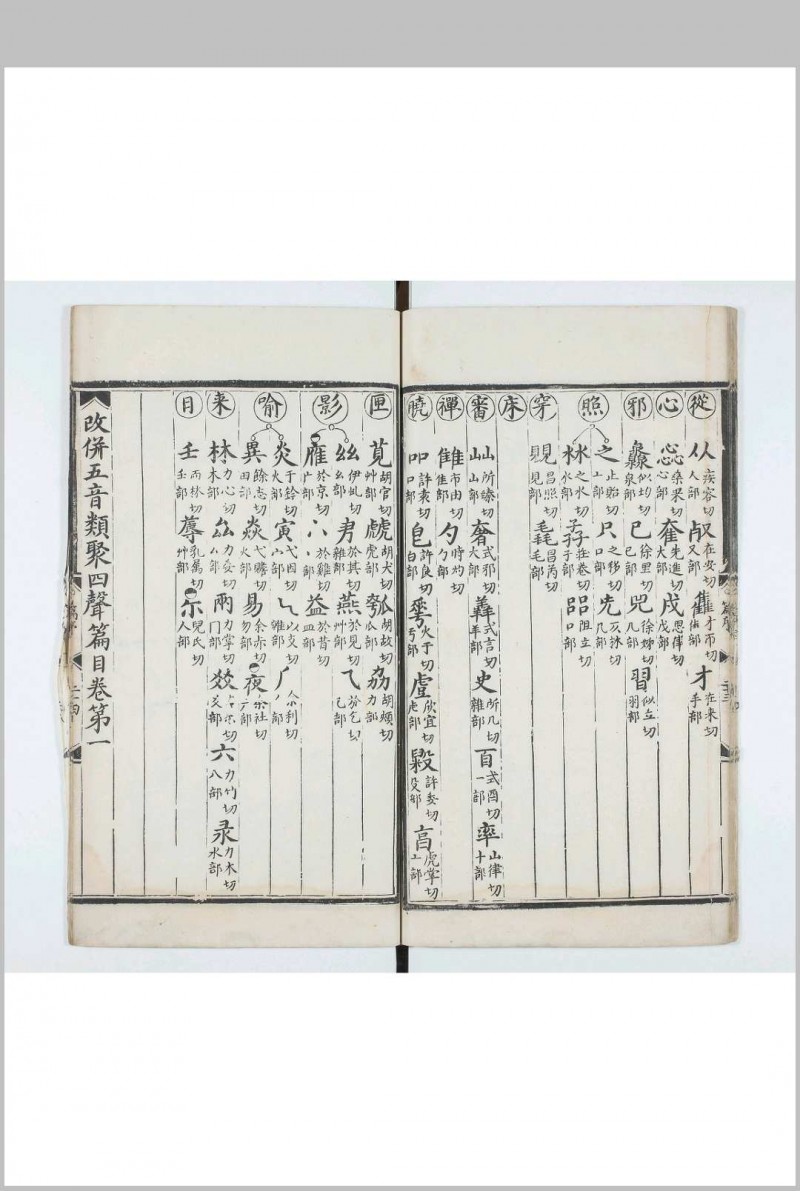 從 从 疾容切 人部 𣦼 在安切 又部 雥 才帀切 隹部 才 在来切 手部
心 惢 桑果切 心部 奞 先進切 大部 戌 思律切 戊部
邪 灥 似均切 泉部 巳 徐里切 己部 兕 徐姊切 几部 習 似立切 羽部
照 之 止貽切 工部 只 之移切 口部 先
沝 之水切 水部 孨 莊卷切 子部 㗊 阻立切 口部
穿 覞 昌照切 見部 毳 昌芮切 毛部
床
審 山 所臻切 山部 奢 式邪切 大部 羴 式言切 羊部 史 所几切 雜部 百 式酉切 一部 率 山律切 十部
禪 雔 市由切 隹部 勺 時灼切 勹部
曉 吅 許袁切 口部 皀 許良切 白部 雩 火于切 亏部 虗 欣宜切 虍部 毇 許委切 殳部 亯 虎掌切 亠部
匣 萈 胡官切 艸部 虤 胡犬切 虎部 瓠 胡故切 瓜部 劦 胡頰切 力部
影 丝 伊虬切 幺部 㠯 於其切 雜部 燕 於見切 艸部 乁 於乞切 乙部
雁 於京切 广部 八 於雞切 丶部 益 於昔切 皿部
喻 炎 于鈴切 火部 寅 弋因切 宀部 乁 以支切 雜部 厂 余利切 丿部
異 餘志切 田部 焱 弋贍切 火部 易 余亦切 勿部 夜 余社切 亠部
来 林 力心切 木部 厽 力委切 厶部 兩 力掌切 冂部 㸚 爻部 六 力竹切 八部 录 力木切 水部
日 壬 而林切 壬部 蓐 乳萬切 艸部 尒 兒氏切 人部
改併五音類聚四聲篇目卷第一